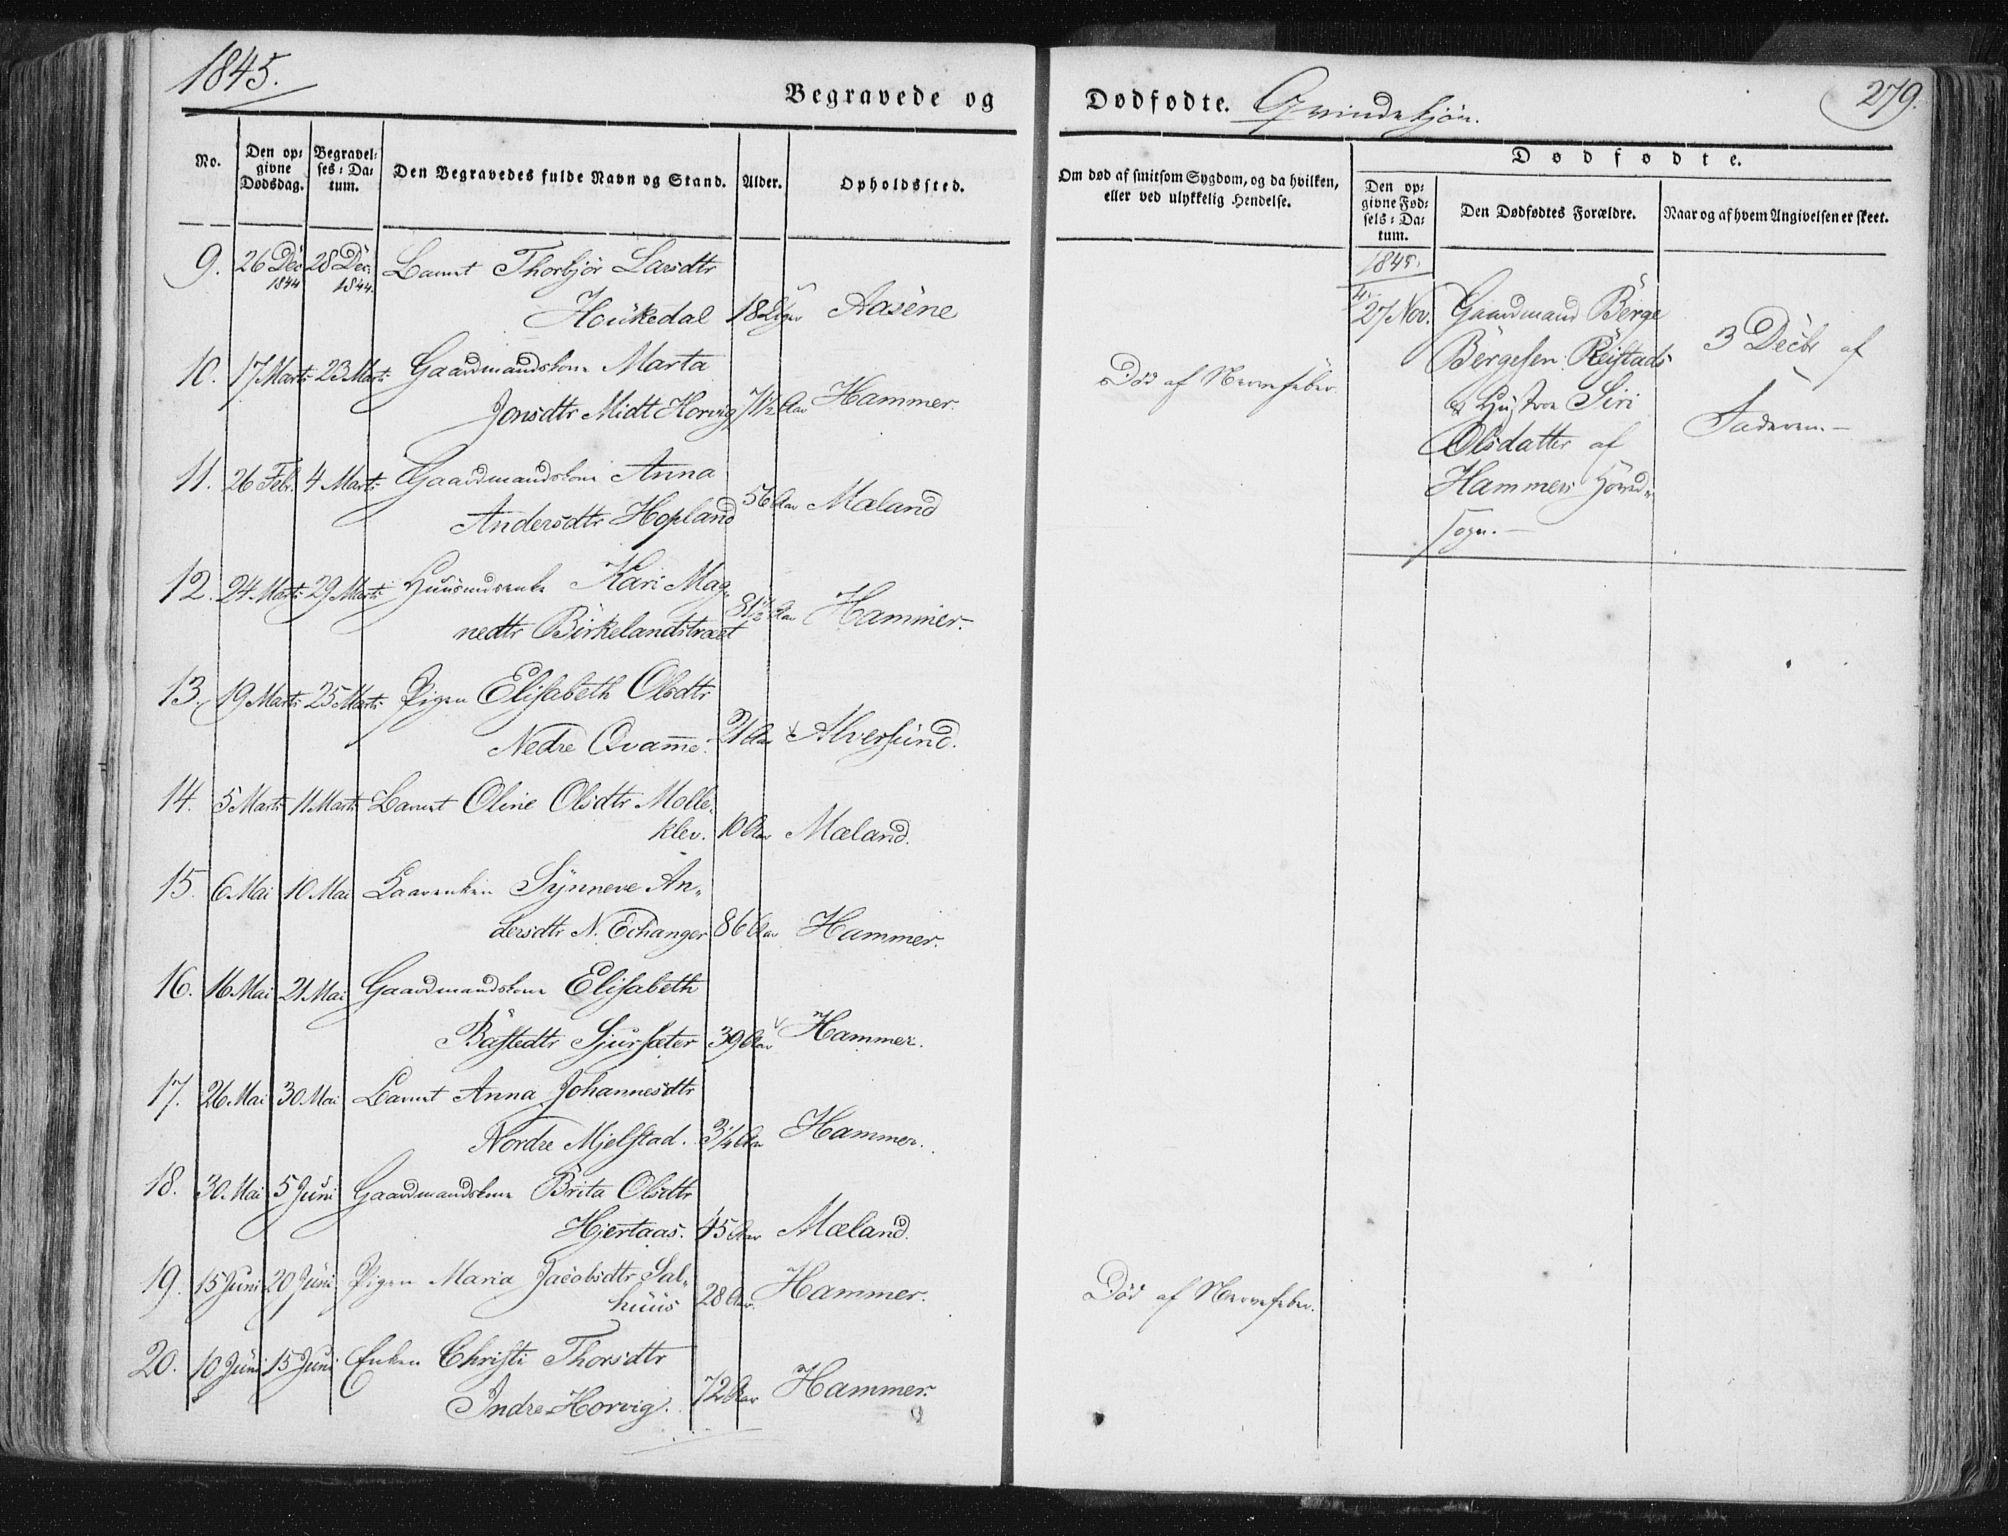 1845.
Begravede og
Dødfødte. Qvindekjøn.
279.
No.
Den op: givne Dødsdag.
Begravel: ses: Da: tum.
Den Begravedes fulde Navn og Stand.
Alder.
Opholdssted.
Om død af smitsom Sygdom, og da hvilken, eller ved ulykkelig Hendelse.
Dødfødte.
Den op: givne Fød: sels: Da: tum.
Den Dødfødtes Forældre.
Naar og af hvem Angivelsen er skeet.
9. 26 Dec 1844 28 Dec. 1844. Barnet Thorbjør Larsdtr
Houkedal 18 Uger Aasene
10. 17 Marts 23 Marts Gaardmandskone Marta
Jonsdtr Midt Horvig 71½ Aar Hammer. Død af Nervefeber.
11. 26 Febr. 4 Marts Gaardmandskone Anna
Andersdtr Hopland 56 Aar Mæland
12. 24 Marts 29 Marts Huusmdsenke Kari Mag„
nedtr Birkelandstræet 81½ Aar Hammer.
13. 19 Marts 25 Marts Pigen Elisabeth Olsdtr
Nedre Qvamme. 21 Aar Alversund.
14. 5 Marts 11 Marts Barnet Oline Olsdtr Molle„
klev. 10 Aar Mæland.
15 6 Mai 10 Mai Kaarenken Synneve An„
dersdtr N. Echanger 86 Aar Hammer.
16. 16 Mai 21 Mai Gaardmandskone Elisabeth
Båstedtr Sjursæter 39 Aar Hammer.
17. 26 Mai 30 Mai Barnet Anna Johannesdtr
Nordre Mjelstad. 3¼ Aar Hammer.
18. 30 Mai 5 Juni Gaardmandskone Brita Olsdtr
Hjertaas. 45 Aar Mæland.
19. 15 Juni 20 Juni Pigen Maria Jacobsdtr Sal„
huus 28 Aar. Hammer. Død af Nervefeber.
20. 10 Juni 15 Juni Enken Christi Thorsdtr
Indre Horvig. 72 Aar Hammer.
1845.
27 Nov. Gaardmand Børge
Børgesen Reistads
& Hustroe Siri
Olsdatter af
Hammers Hoved„
sogn.
3 Decbr af
Faderen.